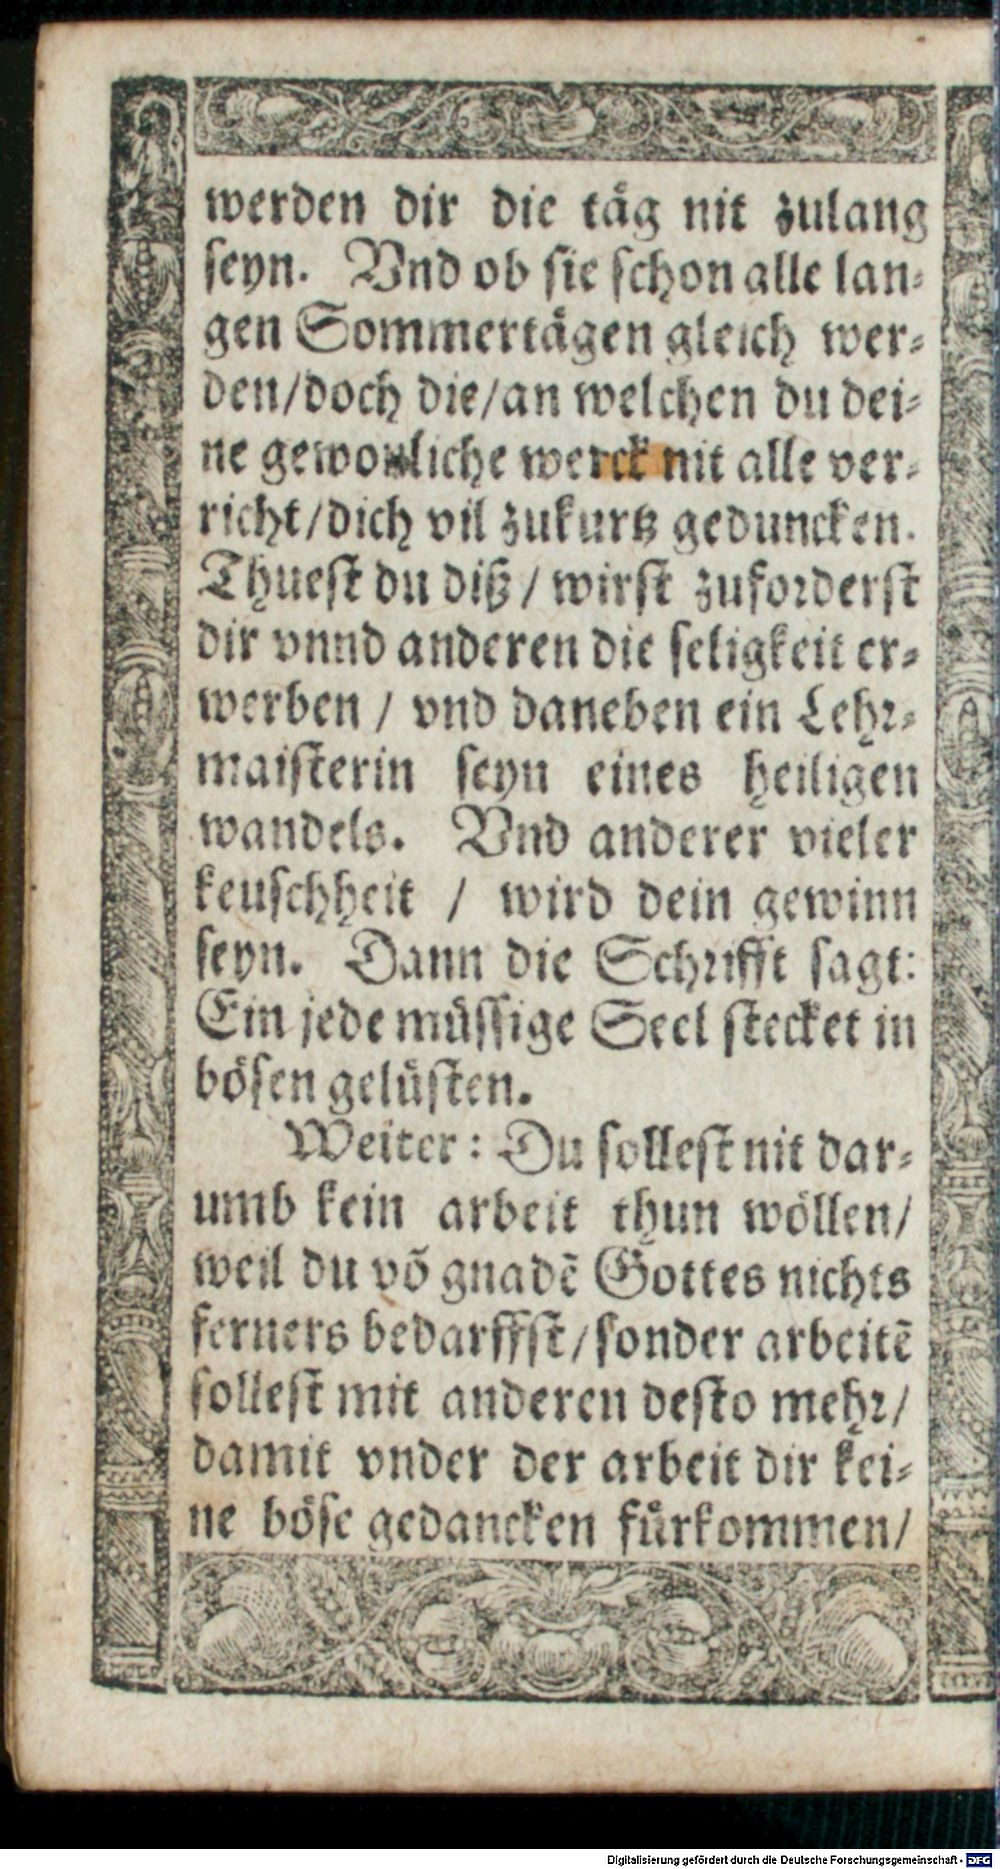 werden dir die täg nit zulang
seyn. Vnd ob sie schon alle lan-
gen Sommertägen gleich wer-
den/doch die/an welchen du dei-
ne gewonliche werck nit alle ver-
richt/dich vil zukurtz geduncken.
Thuest du diß/ wirst zuforderst
dir vnnd anderen die seligkeit er-
werben / vnd daneben ein Lehr-
maisterin seyn eines heiligen
wandels. Vnd anderer vieler
keuschheit / wird dein gewinn
seyn. Dann die Schrifft sagt:
Ein jede müssige Seel stecket in
bösen gelüsten.
Weiter: Du sollest nit dar-
umb kein arbeit thun wöllen/
weil du võ gnadẽ Gottes nichts
ferners bedarffst/sonder arbeitẽ
sollest mit anderen desto mehr/
damit vnder der arbeit dir kei-
ne böse gedancken fürkommen/
Digitalisierung gefördert durch die Deutsche Forschungsgemeinschaft - DFG